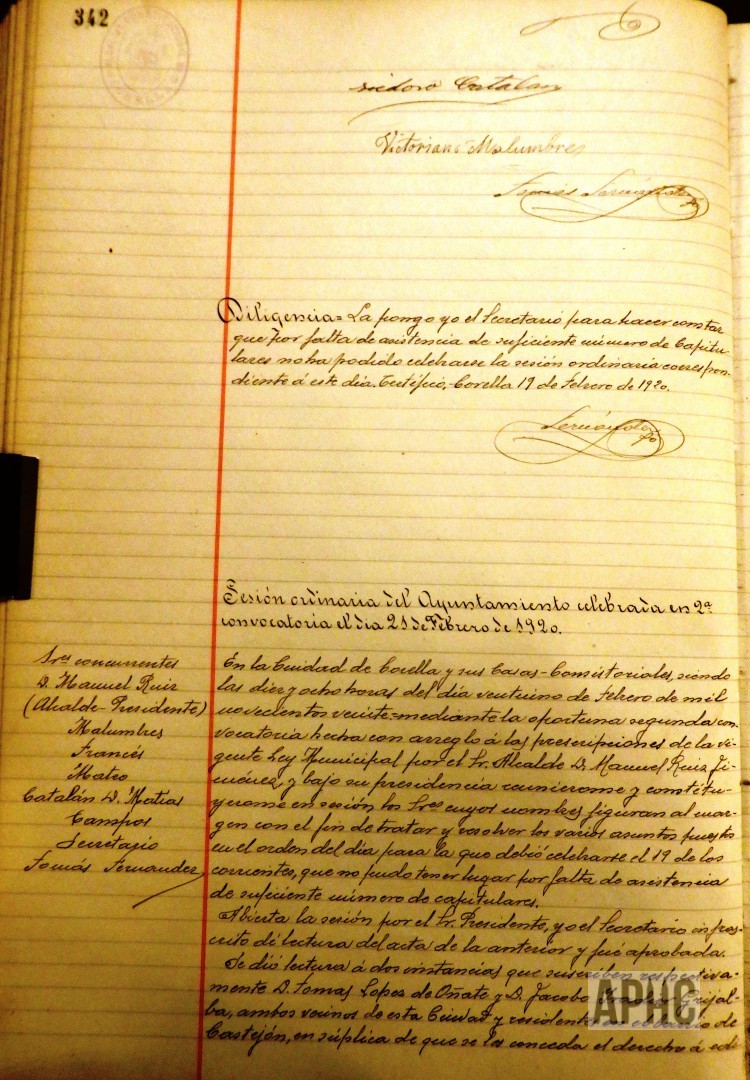 342
Isidoro Catalan
Victoriano Malumbres
Diligencia = La pongo yo el Secretario para hacer constar
que por falta de asistencia de suficiente número de Capitu-
lares no ha podido celebrarse la sesión ordinaria correspon-
diente á este día. Certifico, Corella 19 de Febrero de 1920.
Sesión ordinaria del Ayuntamiento celebrada en 2ª
convocatoria el dia 21 de Febrero de 1920.
Sres concurrentes
D. Manuel Ruiz
(Alcalde-Presidente)
Malumbres
Francés
Mateo
Catalán D. Matías
Campos
Secretario
Tomás Fernandez
En la Ciudad de Corella y sus Casas-Consistoriales, siendo
las diez y ocho horas del día veintiuno de Febrero de mil
novecientos veinte = mediante la oportuna segunda con-
vocatoria hecha con arreglo á las prescripciones de la vi-
gente Ley Municipal por el Sr. Alcalde D. Manuel Ruiz Ji-
ménez y bajo su presidencia reunieronse y constitu-
yeronse en sesión los Sres cuyos nombres figuran al mar-
gen con el fin de tratar y resolver los varios asuntos puestos
en el orden del dia para la que debió celebrarse el 19 de los
corrientes, que no pudo tener lugar por falta de asistencia
de suficiente número de capitulares.
Abierta la sesión por el Sr. Presidente, yo el Secretario infras-
crito dí lectura del acta de la anterior y fué aprobada.
Se dió lectura á dos instancias que suscriben respectiva-
mente D. Tomas Lopez de Oñate y D. Jacobo Grijal-
ba, ambos vecinos de esta Ciudad y residentes en el barrio de
Castejón, en súplica de que se les conceda el derecho á edi-
APHC